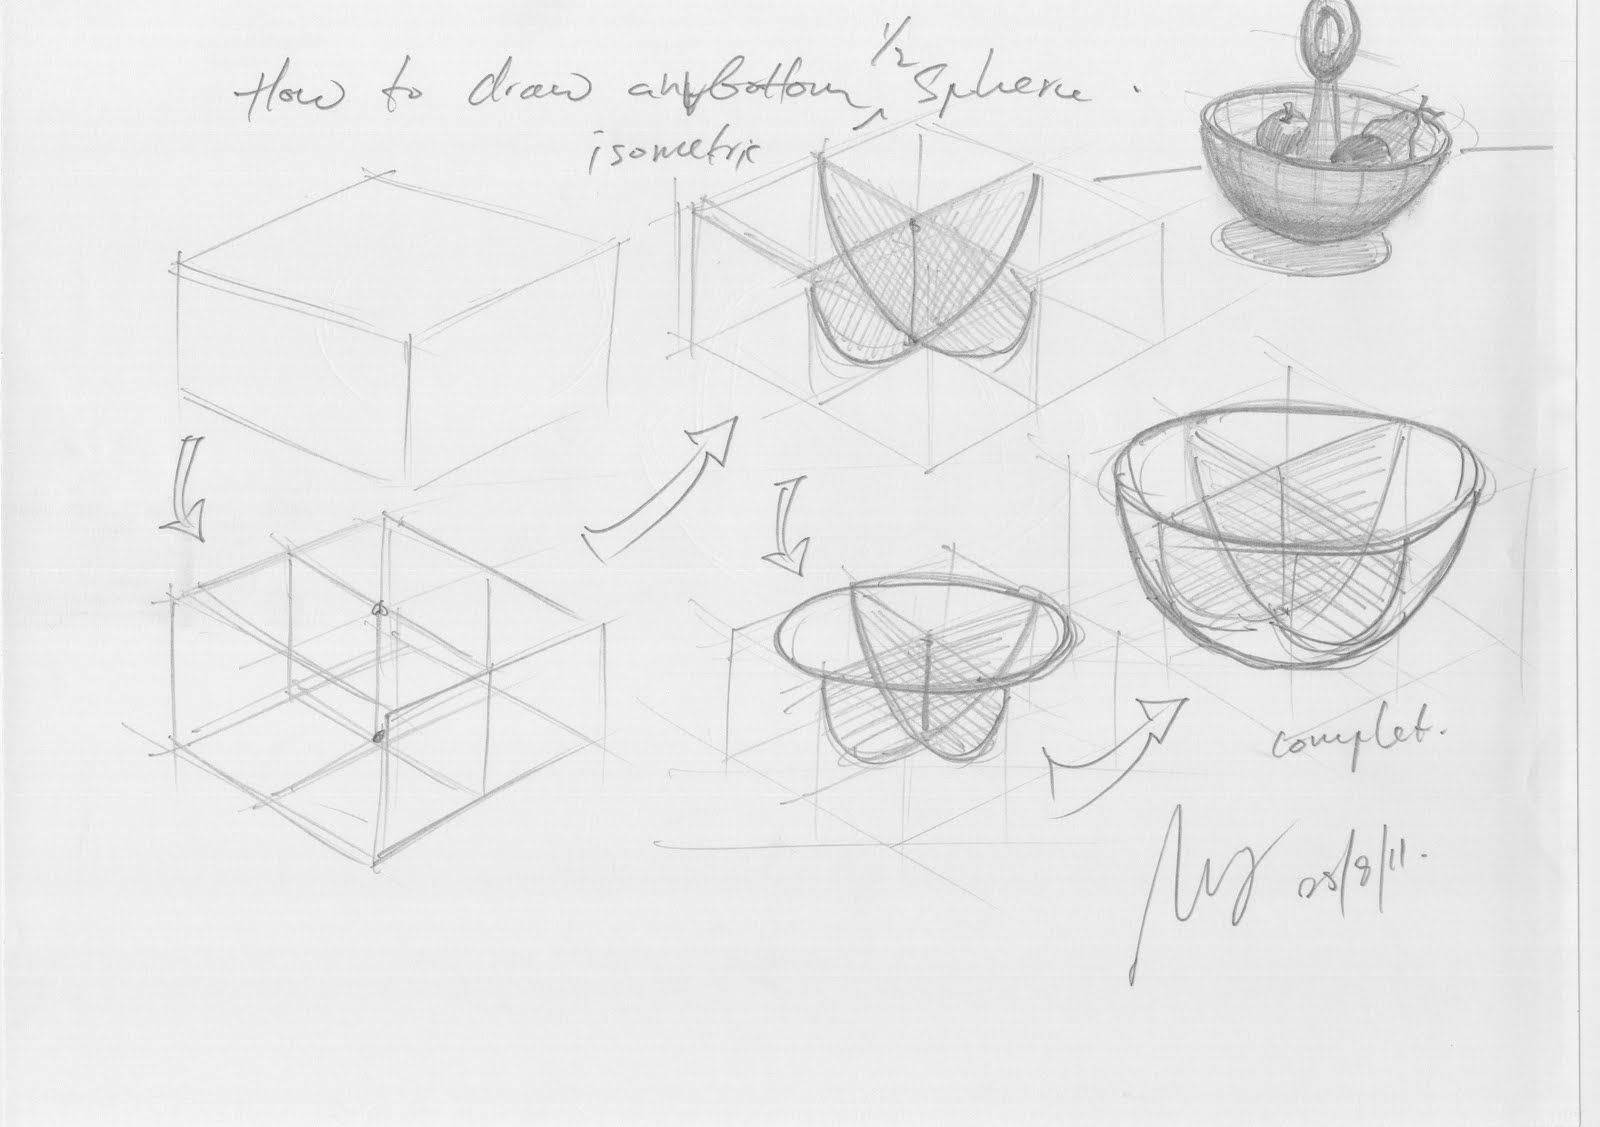 How to draw any bottom 1/2 Sphere.
isometric
complet.
28/8/11.